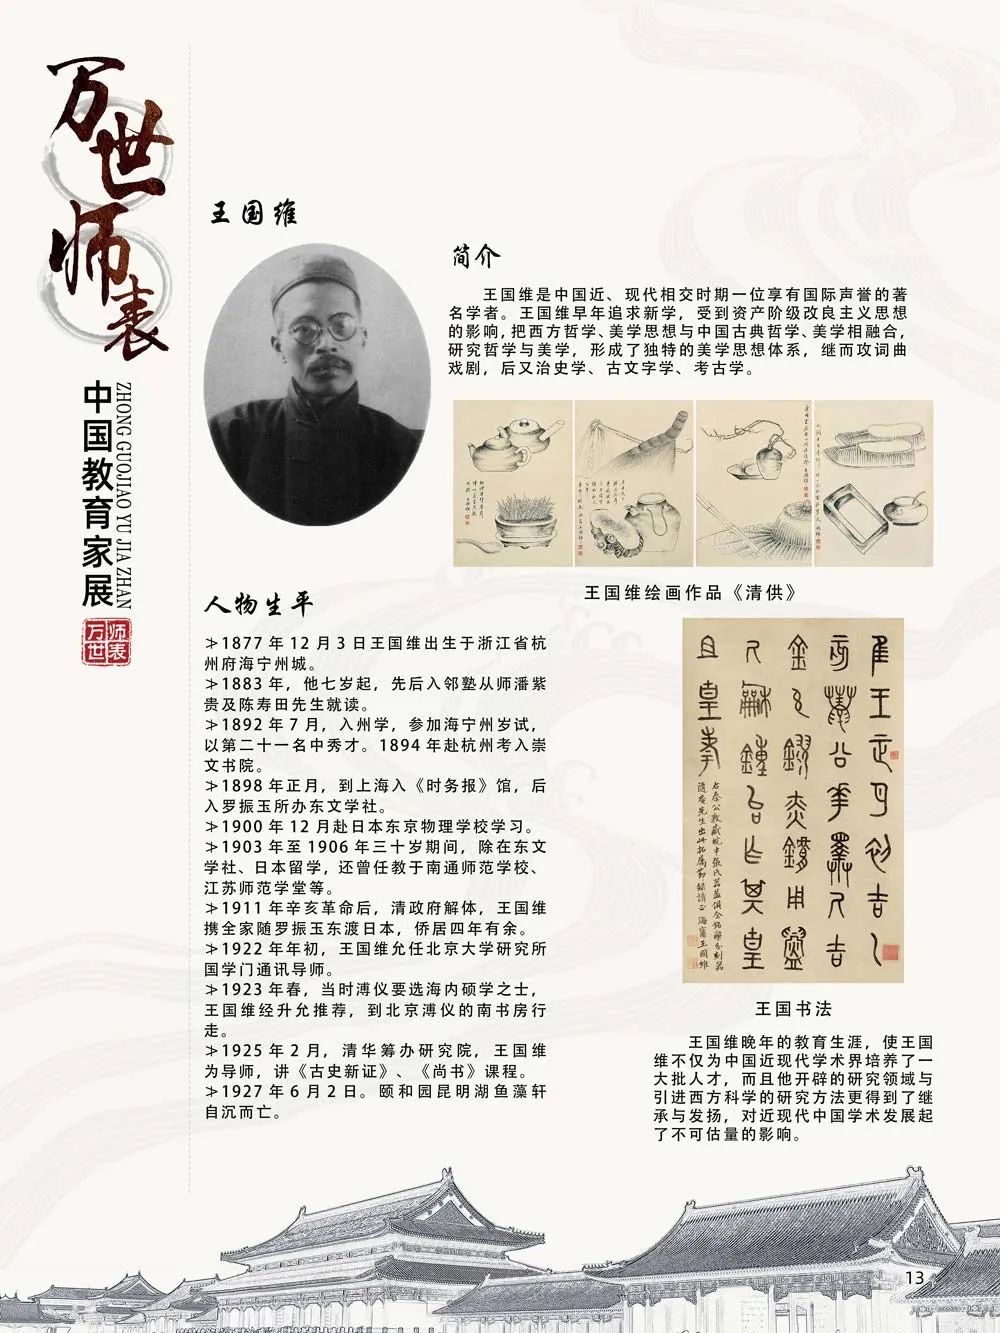 万世师表
中国教育家展
ZHONG GUOJIAO YU JIA ZHAN
万世师表
王国维
简介
王国维是中国近、现代相交时期一位享有国际声誉的著
名学者。王国维早年追求新学，受到资产阶级改良主义思想
的影响，把西方哲学、美学思想与中国古典哲学、美学相融合，
研究哲学与美学，形成了独特的美学思想体系，继而攻词曲
戏剧，后又治史学、古文字学、考古学。
王国维绘画作品《清供》
人物生平
≯1877年12月3日王国维出生于浙江省杭
州府海宁州城。
≯1883年，他七岁起，先后入邻塾从师潘紫
贵及陈寿田先生就读。
≯1892年7月，入州学，参加海宁州岁试，
以第二十一名中秀才。1894年赴杭州考入崇
文书院。
≯1898年正月，到上海入《时务报》馆，后
入罗振玉所办东文学社。
≯1900年12月赴日本东京物理学校学习。
≯1903年至1906年三十岁期间，除在东文
学社、日本留学，还曾任教于南通师范学校、
江苏师范学堂等。
≯1911年辛亥革命后，清政府解体，王国维
携全家随罗振玉东渡日本，侨居四年有余。
≯1922年年初，王国维允任北京大学研究所
国学门通讯导师。
≯1923年春，当时溥仪要选海内硕学之士，
王国维经升允推荐，到北京溥仪的南书房行
走。
≯1925年2月，清华筹办研究院，王国维
为导师，讲《古史新证》、《尚书》课程。
≯1927年6月2日。颐和园昆明湖鱼藻轩
自沉而亡。
王国书法
王国维晚年的教育生涯，使王国
维不仅为中国近现代学术界培养了一
大批人才，而且他开辟的研究领域与
引进西方科学的研究方法更得到了继
承与发扬，对近现代中国学术发展起
了不可估量的影响。
13